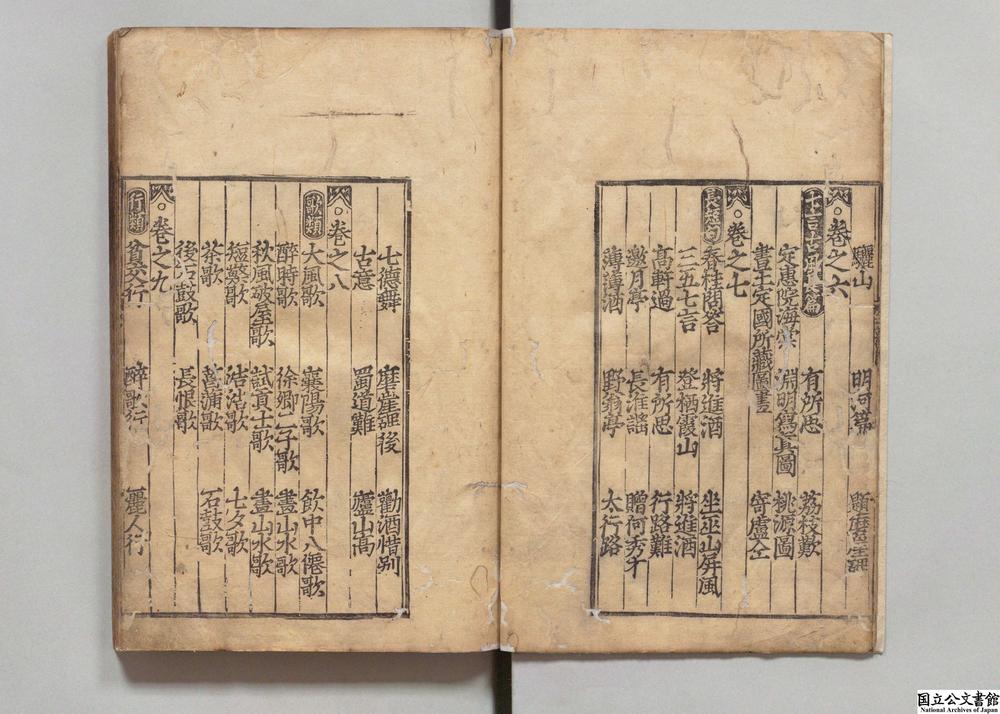 驪山　明河篇　題磨崖碑
卷之六
七言古風長篇　有所思　荔枝歎
定惠院海棠　淵明寫真圖　桃源圖
書王定國所藏圖畫　寄盧仝
卷之七
長短句　春桂問答　將進酒　坐巫山屏風
三五七言　登栖霞山　將進酒
高軒過　有所思　行路難
邀月亭　長淮謠　贈何秀才
薄薄酒　野翁亭　太行路
七德舞　磨崖碑後　勸酒惜別
古意　蜀道難　廬山高
卷之八
歌類　大風歌　襄陽歌　飲中八僊歌
醉時歌　徐卿二子歌　畫山水歌
秋風破屋歌　試賓士歌　畫山水歌
短檠歌　浩浩歌　七夕歌
茶歌　菖蒲歌　石鼓歌
後石鼓歌　長恨歌
卷之九
行類　貧交行　醉歌行　麗人行
国立公文書館
National Archives of Japan